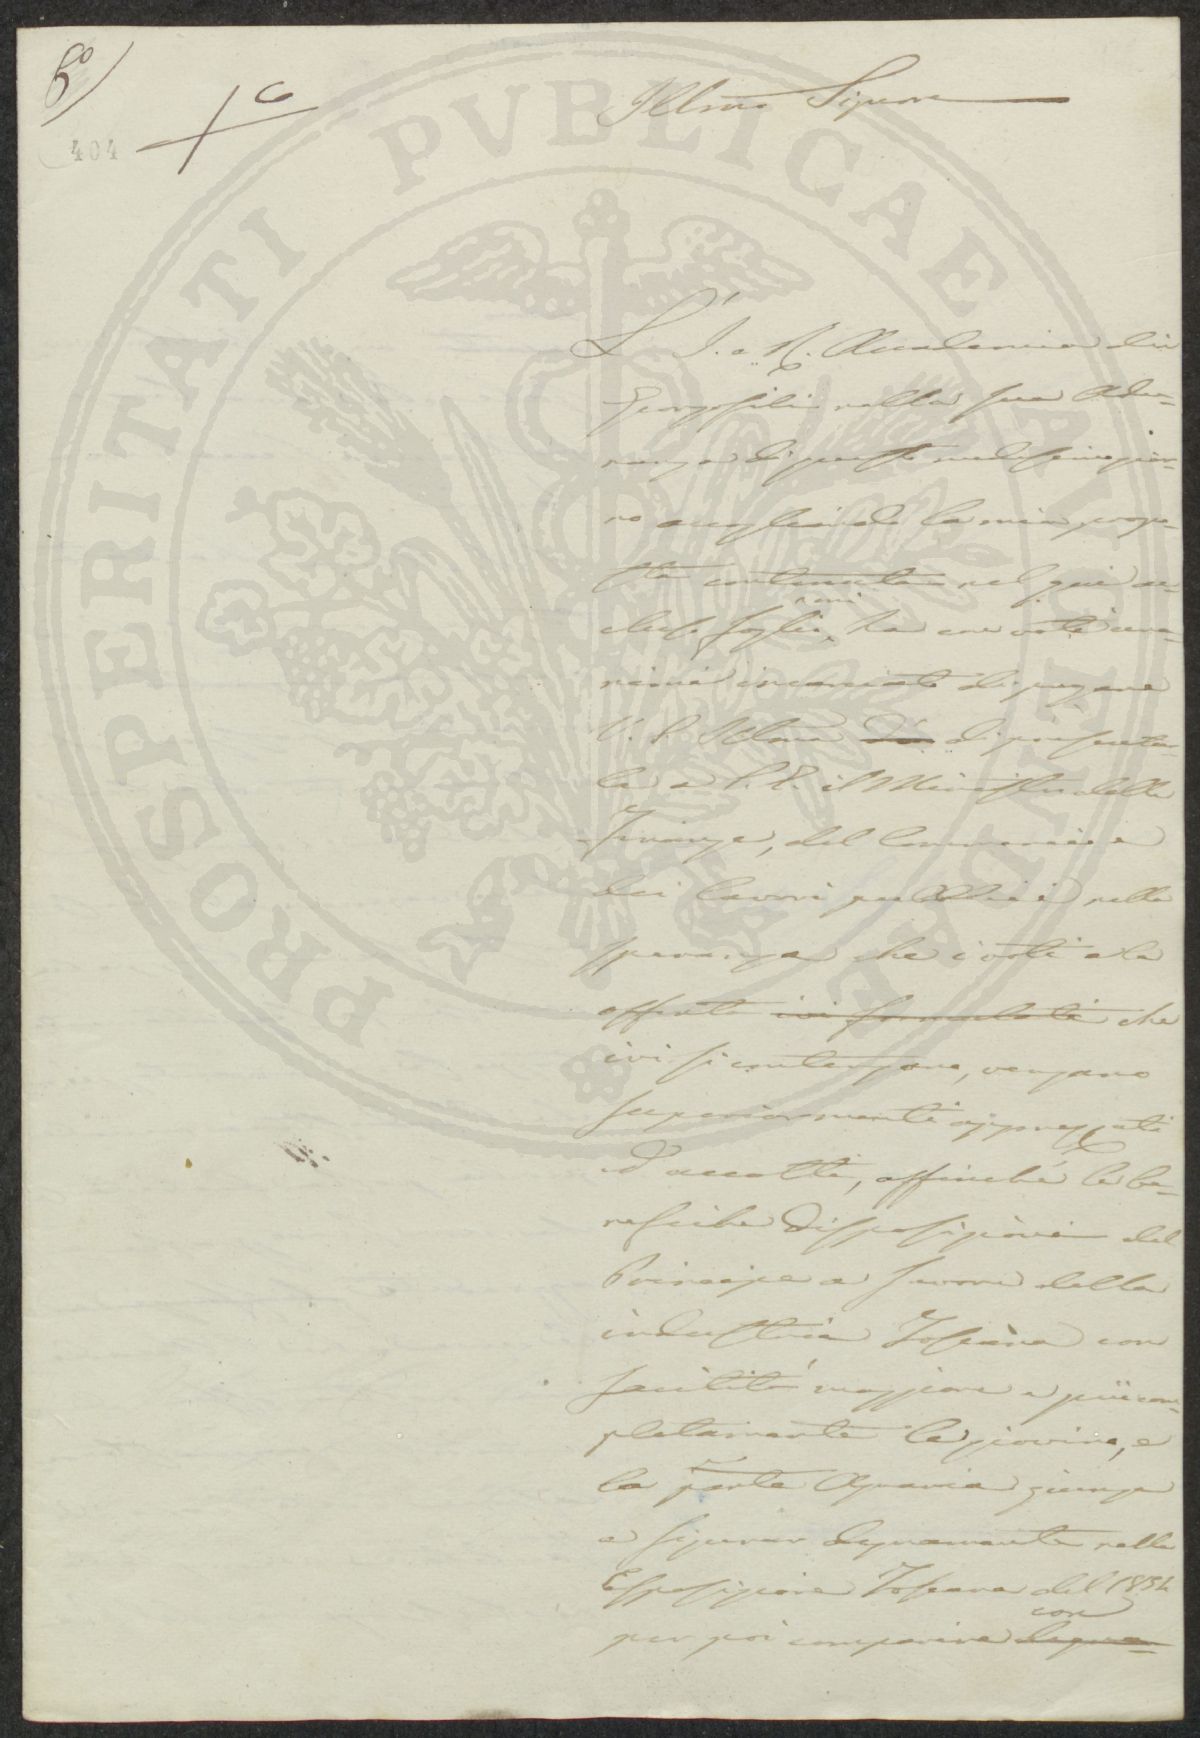 6°)
404
Illmo Signore
L'I. e R. Accademia dei
Georgofili nella sua Adu-
nanza di questo medesimo gior-
no accogliendo la mia propo-
sta contenuta nel qui ac-
cluso foglio, ha con voti una-
nimi incaricato di pregare
V. S. Illma di presentar-
la a S. E. il Ministro delle
Finanze, del Commercio e
dei lavori pubblici nella
speranza che i voti e le
offerte ivi formulate che
ivi si contengono, vengano
superiormente apprezzati
ed accolti, affinché le be-
nefiche disposizioni del
Principe a favore della
industria Toscana con
facilità maggiore e più com-
pletamente le giovino, e
la parte Agraria giunga
a figurar degnamente nella
Esposizione Toscana del 1854
con
per poi comparire degna-
PROSPERITATI PVBLICAE AVGENDAE